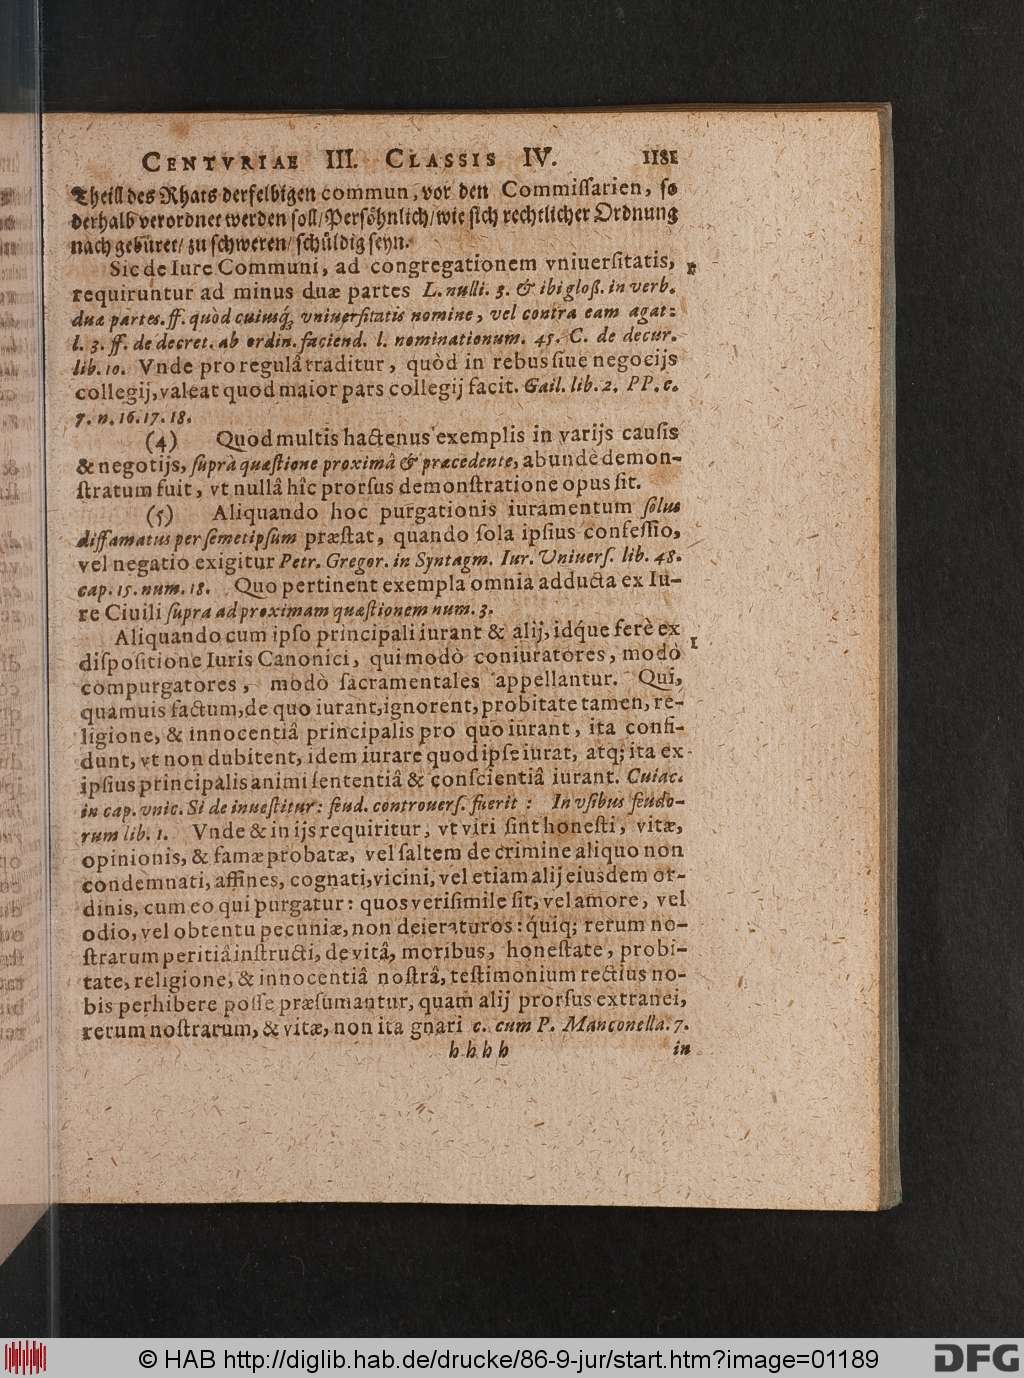 CENTVRIAE III. CLASSIS IV. 1181
Theill des Rhats derselbigen commun, vor den Commiſſarien, ſo
derhalb verordnet werden ſoll/ Perſöhnlich/ wie ſich rechtlicher Ordnung
nach gebüret/ zu ſchweren/ ſchüldig ſeyn.
Sic de Iure Communi, ad congregationem vniuerſitatis,
requiruntur ad minus duæ partes L. nulli. 3. & ibi gloß. in verb.
duæ partes. ff. quòd cuiusq́; vniuerſitatis nomine, vel contra eam agat:
l. 3. ff. de decret. ab ordin. faciend. l. nominationum. 45. C. de decur.
lib. 10. Vnde pro regulâ traditur, quòd in rebus ſiue negocijs
collegij, valeat quod maior pars collegij facit. Gail. lib. 2. PP. c.
7. n. 16. 17. 18.
(4) Quod multis hactenus exemplis in varijs cauſis
& negotijs, ſuprà quæſtione proximâ & præcedente, abundè demon-
ſtratum fuit, vt nullâ hîc prorſus demonſtratione opus ſit.
(5) Aliquando hoc purgationis iuramentum ſolus
diffamatus per ſemetipſum præſtat, quando ſola ipſius confeſſio,
vel negatio exigitur Petr. Gregor. in Syntagm. Iur. Vniuerſ. lib. 48.
cap. 15. num. 18. Quo pertinent exempla omnia adducta ex Iu-
re Ciuili ſupra ad proximam quæſtionem num. 3.
Aliquando cum ipſo principali iurant & alij, idq́ue ferè ex
diſpoſitione Iuris Canonici, qui modò coniuratores, modò
compurgatores, modò ſacramentales appellantur. Qui,
quamuis factum, de quo iurant, ignorent, probitate tamen, re-
ligione, & innocentiâ principalis pro quo iurant, ita confi-
dunt, vt non dubitent, idem iurare quod ipſe iurat, atq; ita ex
ipſius principalis animi ſententiâ & conſcientiâ iurant. Cuiac.
in cap. vnic. Si de inueſtitur: feud. controuerſ. fuerit : In vſibus feudo-
rum lib. 1. Vnde & in ijs requiritur, vt viri ſint honeſti, vitæ,
opinionis, & famæ probatæ, vel ſaltem de crimine aliquo non
condemnati, affines, cognati, vicini, vel etiam alij eiusdem or-
dinis, cum eo qui purgatur: quos veriſimile ſit, vel amore, vel
odio, vel obtentu pecuniæ, non deieraturos: q́uiq; rerum no-
ſtrarum peritiâ inſtructi, de vitâ, moribus, honeſtate, probi-
tate, religione, & innocentiâ noſtrâ, teſtimonium rectius no-
bis perhibere poſſe præſumantur, quam alij prorſus extranei,
rerum noſtrarum, & vitæ, non ita gnari c. cum P. Manconella. 7.
h h h h in
© HAB http://diglib.hab.de/drucke/86-9-jur/start.htm?image=01189
DFG